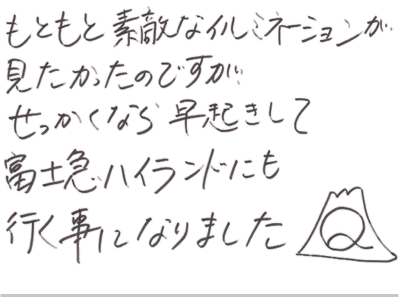 もともと素敵なイルミネーションが
見たかったのですが
せっかくなら早起きして
富士急ハイランドにも
行く事になりました
Q